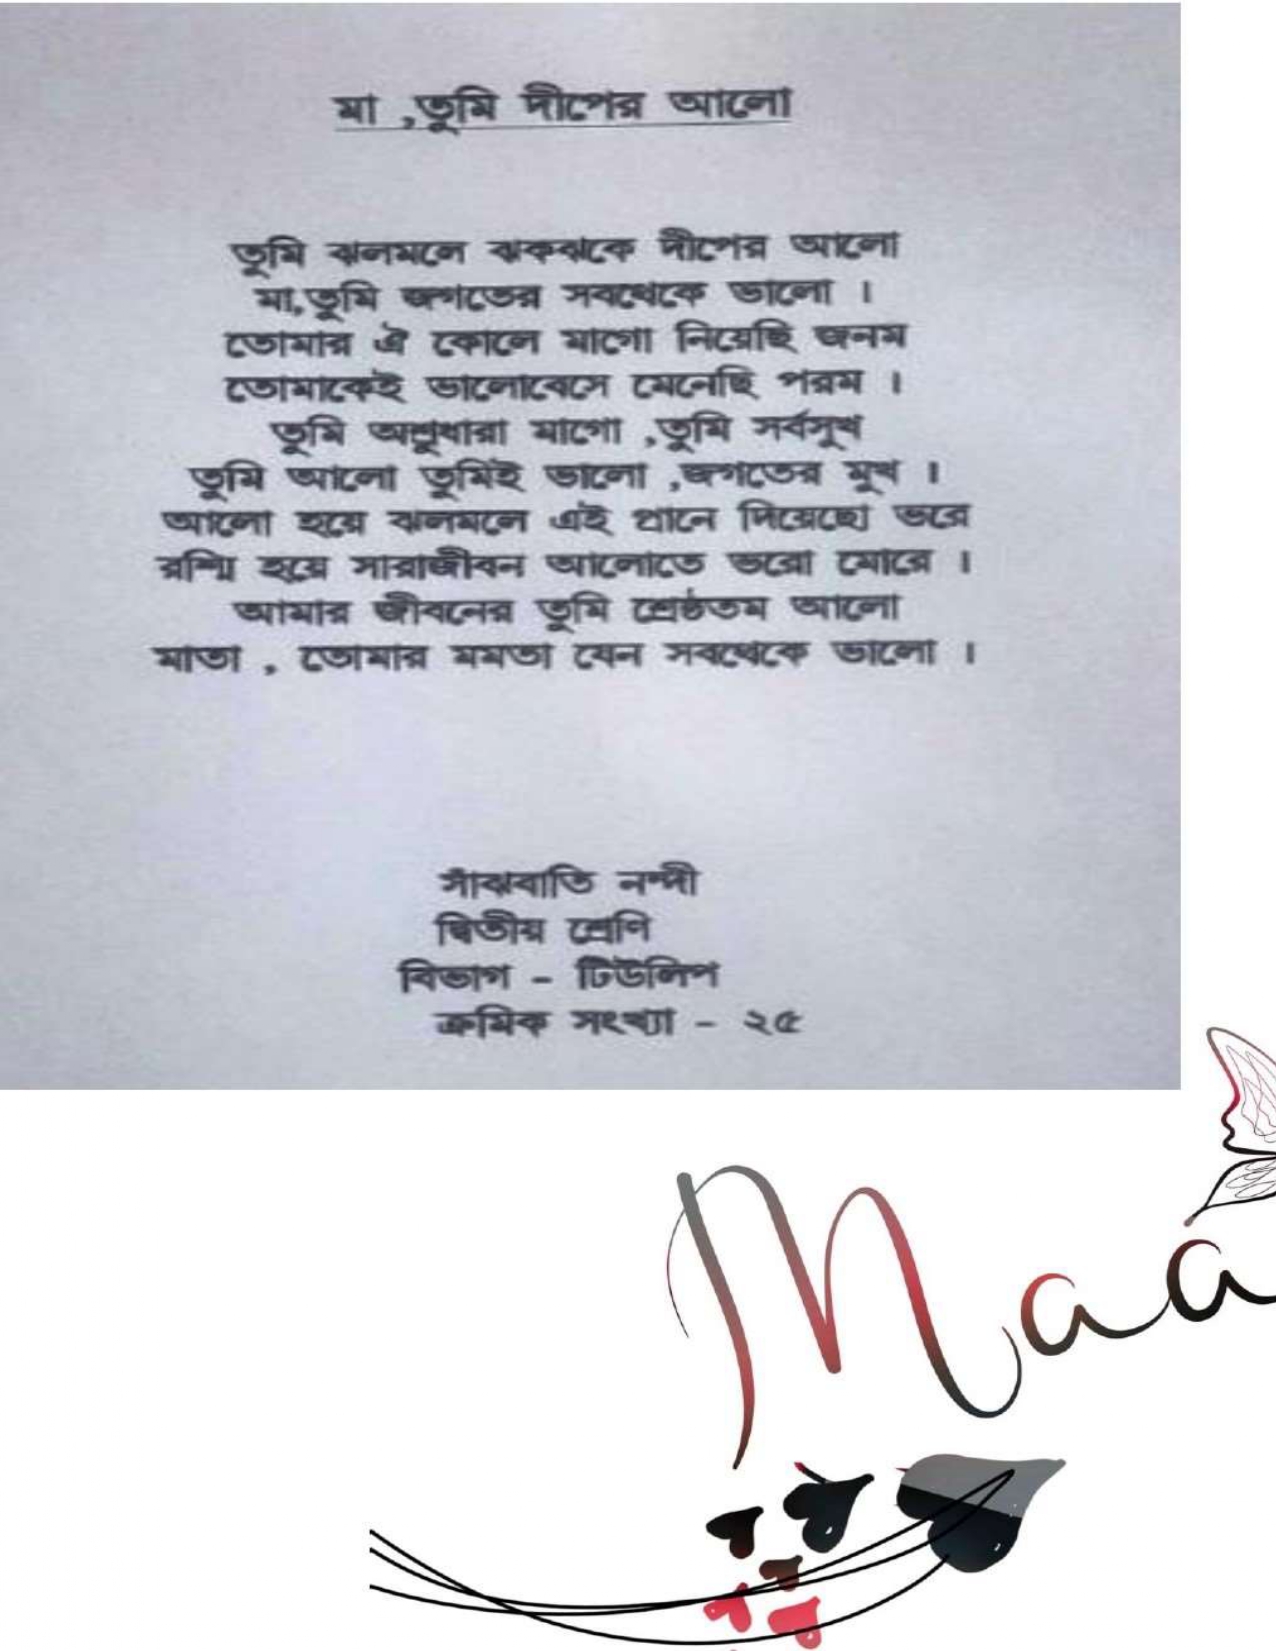 মা ,তুমি দীপের আলো
তুমি ঝলমলে ঝকঝকে দীপের আলো
মা,তুমি জগতের সবথেকে ভালো ।
তোমার ঐ কোলে মাগো নিয়েছি জনম
তোমাকেই ভালোবেসে মেনেছি পরম ।
তুমি অশ্রুধারা মাগো ,তুমি সর্বসুখ
তুমি আলো তুমিই ভালো ,জগতের মুখ ।
আলো হয়ে ঝলমলে এই প্রানে দিয়েছো ভরে
রশ্মি হয়ে সারাজীবন আলোতে ভরো মোরে ।
আমার জীবনের তুমি শ্রেষ্ঠতম আলো
মাতা , তোমার মমতা যেন সবথেকে ভালো ।
সাঁঝবাতি নন্দী
দ্বিতীয় শ্রেণি
বিভাগ - টিউলিপ
ক্রমিক সংখ্যা - ২৫
Maa